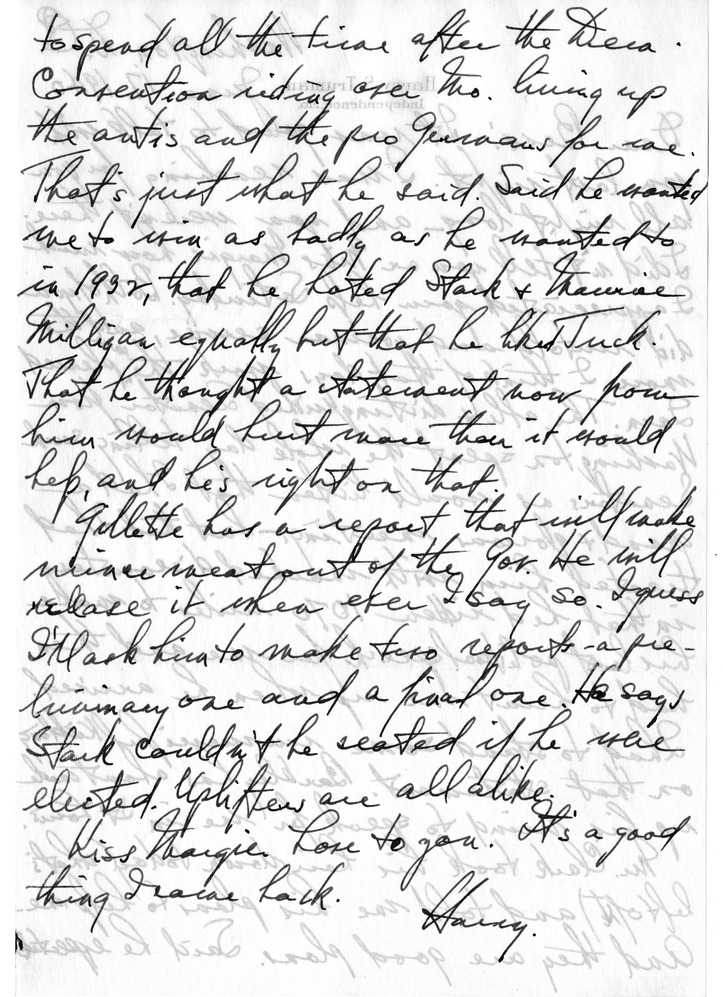 to spend all the time after the Dem.
Convention riding over Mo. lining up
the antis and the pro Germans for me.
That's just what he said. Said he wanted
me to win as badly as he wanted to
in 1932, that he hated Stark & Maurice
Milligan equally but that he liked Tuck.
That he thought a statement now from
him would hurt more than it would
help, and he's right on that.
Gillette has a report that will make
mince meat out of the Gov. He will
release it when ever I say so. I guess
I'll ask him to make two reports - a pre-
liminary one and a final one. He says
Stark couldn't be seated if he were
elected. Uplifters are all alike.
Kiss Margie. Love to you. It's a good
thing I came back.
Harry.